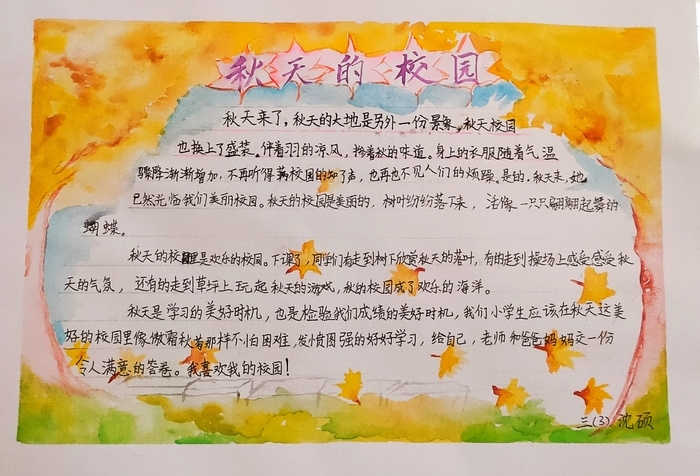 秋天的校园
秋天来了，秋天的大地是另外一份景象。秋天校园
也换上了盛装。伴着羽的凉风，掺着秋的味道。身上的衣服随着气温
骤降渐渐增加，不再听得满校园的知了声，也再也不见人们的烦躁。是的，秋天来，她
已然光临我们美丽校园。秋天的校园是美丽的，树叶纷纷落下来，活像一只只翩翩起舞的
蝴蝶。
秋天的校园里是欢乐的校园。下课了，同学们有走到树下欣赏秋天的落叶，有的走到操场上感受感受秋
天的气氛，还有的走到草坪上玩起秋天的游戏，秋的校园成了欢乐的海洋。
秋天是学习的美好时机，也是检验我们成绩的美好时机，我们小学生应该在秋天这美
好的校园里像傲霜秋菊那样不怕困难，发愤图强的好好学习，给自己，老师和爸爸妈妈交一份
令人满意的答卷。我喜欢我的校园！
三(3) 沈硕